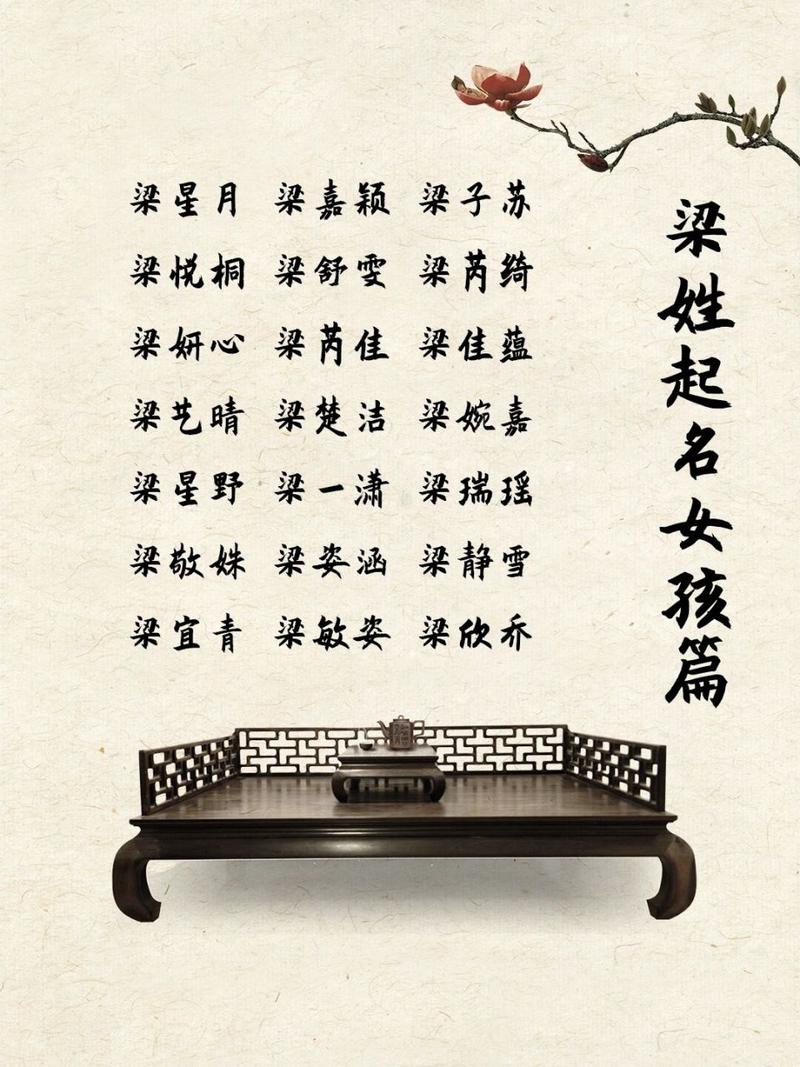 梁姓起名女孩篇
梁星月 梁嘉颖 梁子苏
梁悦桐 梁舒雯 梁芮绮
梁妍心 梁芮佳 梁佳蕴
梁艺晴 梁楚洁 梁婉嘉
梁星野 梁一潇 梁瑞瑶
梁敬姝 梁姿涵 梁静雪
梁宜青 梁敏姿 梁欣乔